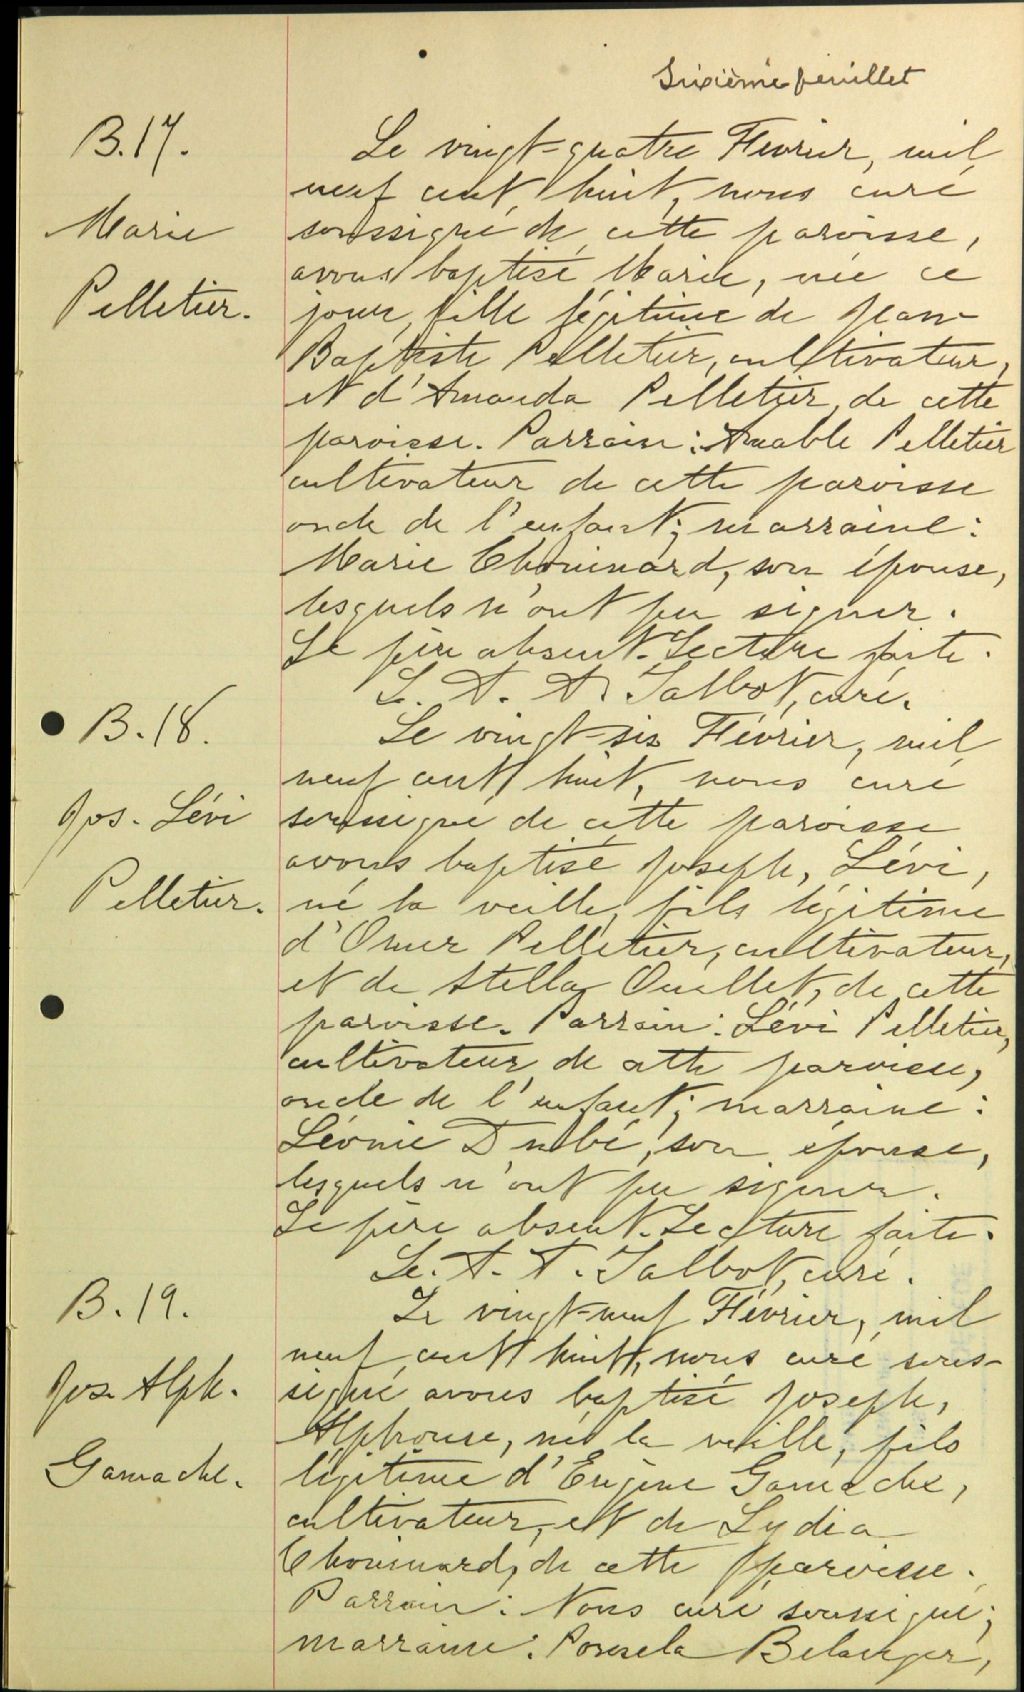 Sixième feuillet
B.17.
Marie
Pelletier.
Le vingt-quatre Février, mil
neuf cent huit, nous curé
soussigné de cette paroisse,
avons baptisé Marie, née ce
jour, fille légitime de Jean-
Baptiste Pelletier, cultivateur,
et d'Amanda Pelletier, de cette
paroisse. Parrain: Amable Pelletier
cultivateur de cette paroisse
oncle de l'enfant; marraine:
Marie Chouinard, son épouse,
lesquels n'ont pu signer.
Le père absent. Lecture faite.
L. A. A. Talbot, curé.
B.18.
Jos. Lévi
Pelletier.
Le vingt-six Février, mil
neuf cent huit, nous curé
soussigné de cette paroisse
avons baptisé Joseph, Lévi,
né la veille, fils légitime
d'Omer Pelletier, cultivateur,
et de Stella Ouellet, de cette
paroisse. Parrain: Lévi Pelletier,
cultivateur de cette paroisse,
oncle de l'enfant; marraine:
Léonie Dubé, son épouse,
lesquels n'ont pu signer.
Le père absent. Lecture faite.
L. A. A. Talbot, curé.
B.19.
Jos. Alph.
Gamache.
Le vingt-neuf Février, mil
neuf cent huit, nous curé sous-
signé avons baptisé Joseph,
Alphonse, né la veille, fils
légitime d'Eugène Gamache,
cultivateur, et de Lydia
Chouinard, de cette paroisse.
Parrain: Nous curé soussigné;
marraine: Belanger,